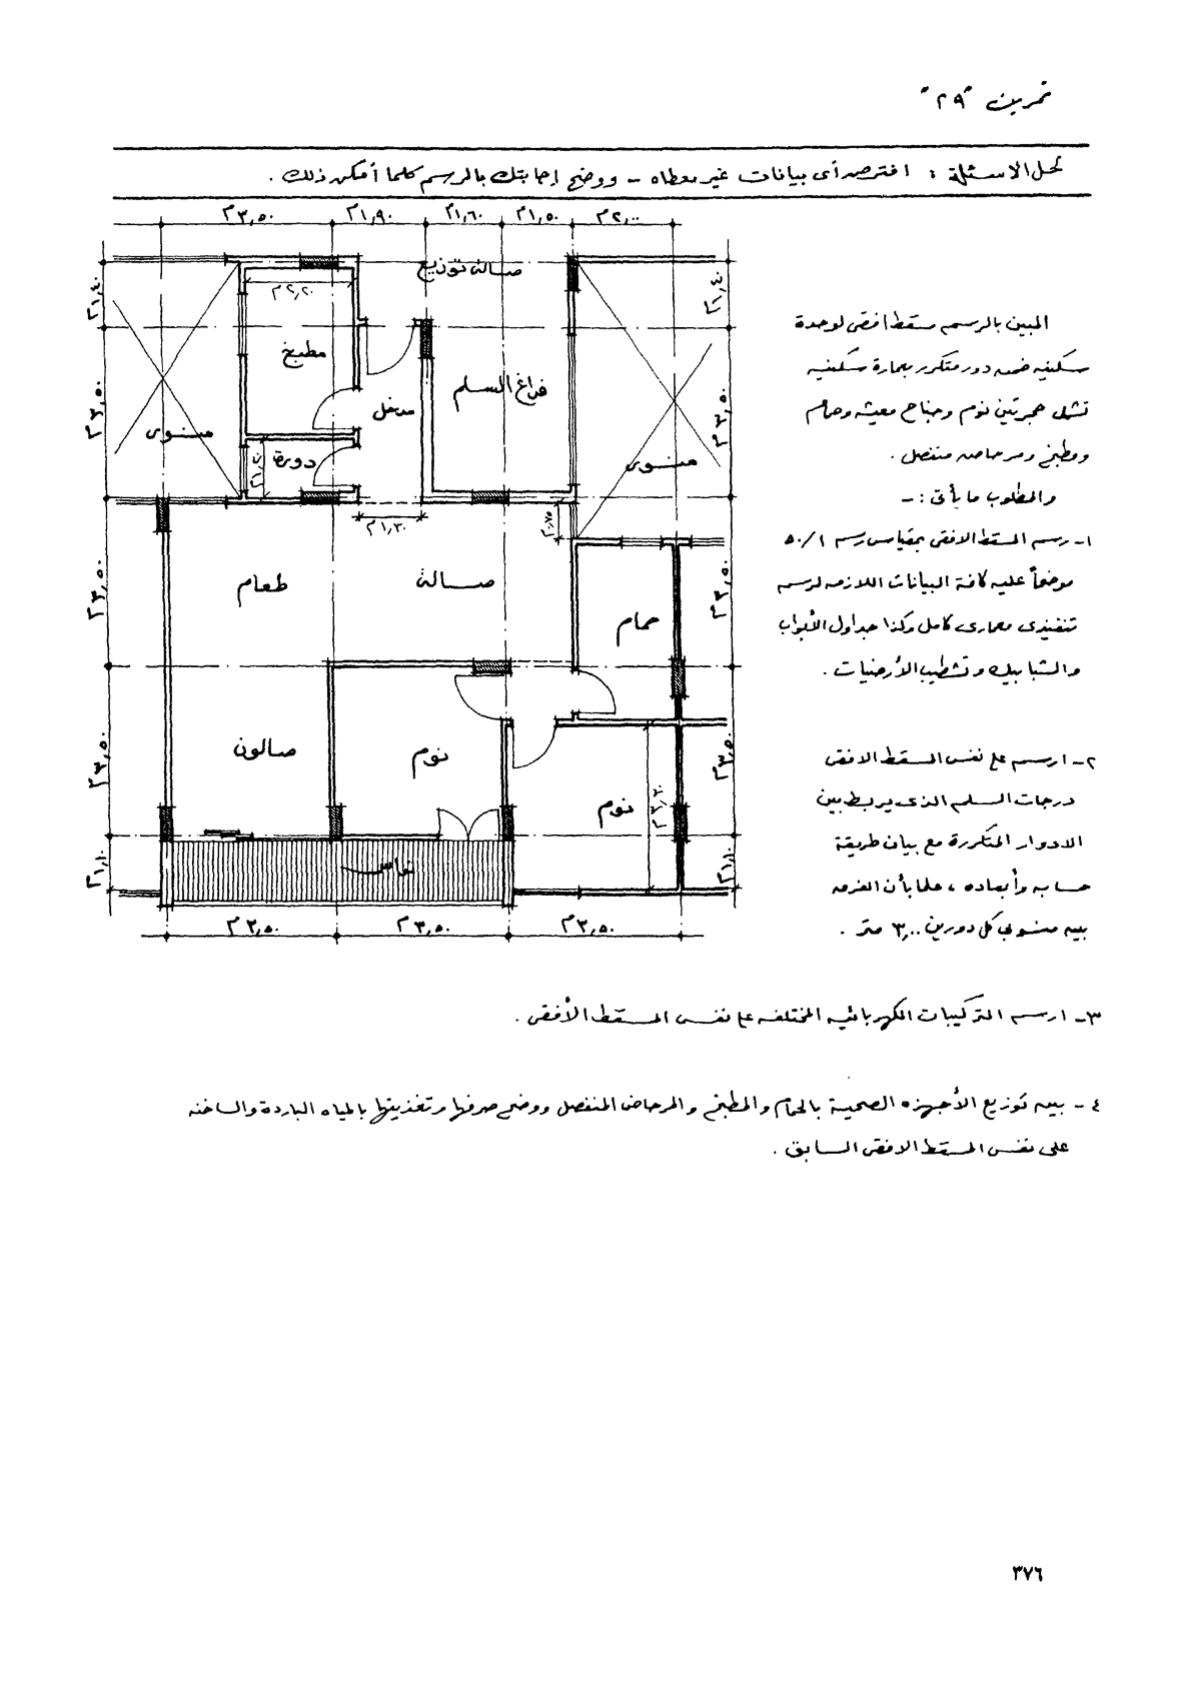 تمرين "٢٩"
لحل الاسئلة : افترض أى بيانات غير معطاه - ووضح إجابتك بالرسم كلما أمكن ذلك .
٣,٥٠م ١,٩٠م ١,٦٠م ١,٥٠م ٢,٠٠م
صالة توزيع
١,٤٠م
١,٤٠م
٢,٢٠م
مطبخ
فراغ السلم
مدخل
منور
منور
٣,٥٠م
٣,٥٠م
دورة
١,٢٠م
١,٣٠م
٠,٧٥م
طعام
صالة
حمام
٣,٥٠م
٣,٥٠م
صالون
نوم
نوم
٣,٥٠م
٣,٥٠م
تراس
١,١٠م
١,١٠م
٣,٥٠م ٣,٥٠م ٣,٥٠م
المبين بالرسم مسقط افقى لوحدة
سكنيه ضمن دور متكرر بعمارة سكنيه
تشمل حجرتين نوم وجناح معيشه وحمام
ومطبخ ومرحاض منفصل .
والمطلوب ما يأتى :-
١- رسم المسقط الافقى بمقياس رسم ١/٥٠
موضحاً عليه كافة البيانات اللازمه لرسم
تنفيذى معمارى كامل وكذا جداول الأبواب
والشبابيك وتشطيب الأرضيات .
٢- ارسم على نفس المسقط الافقى
درجات السلم الذى يربط بين
الادوار المتكررة مع بيان طريقة
حسابه وأبعاده ، علما بأن الفرق
بين منسوبى كل دورين ٣,٠٠ متر .
٣- ارسم التركيبات الكهربائيه المختلفه على نفس المسقط الأفقى .
٤- بين توزيع الأجهزه الصحية بالحمام والمطبخ والمرحاض المنفصل ووضح صرفها وتغذيتها بالمياه الباردة والساخنه
على نفس المسقط الافقى السابق .
٣٧٦